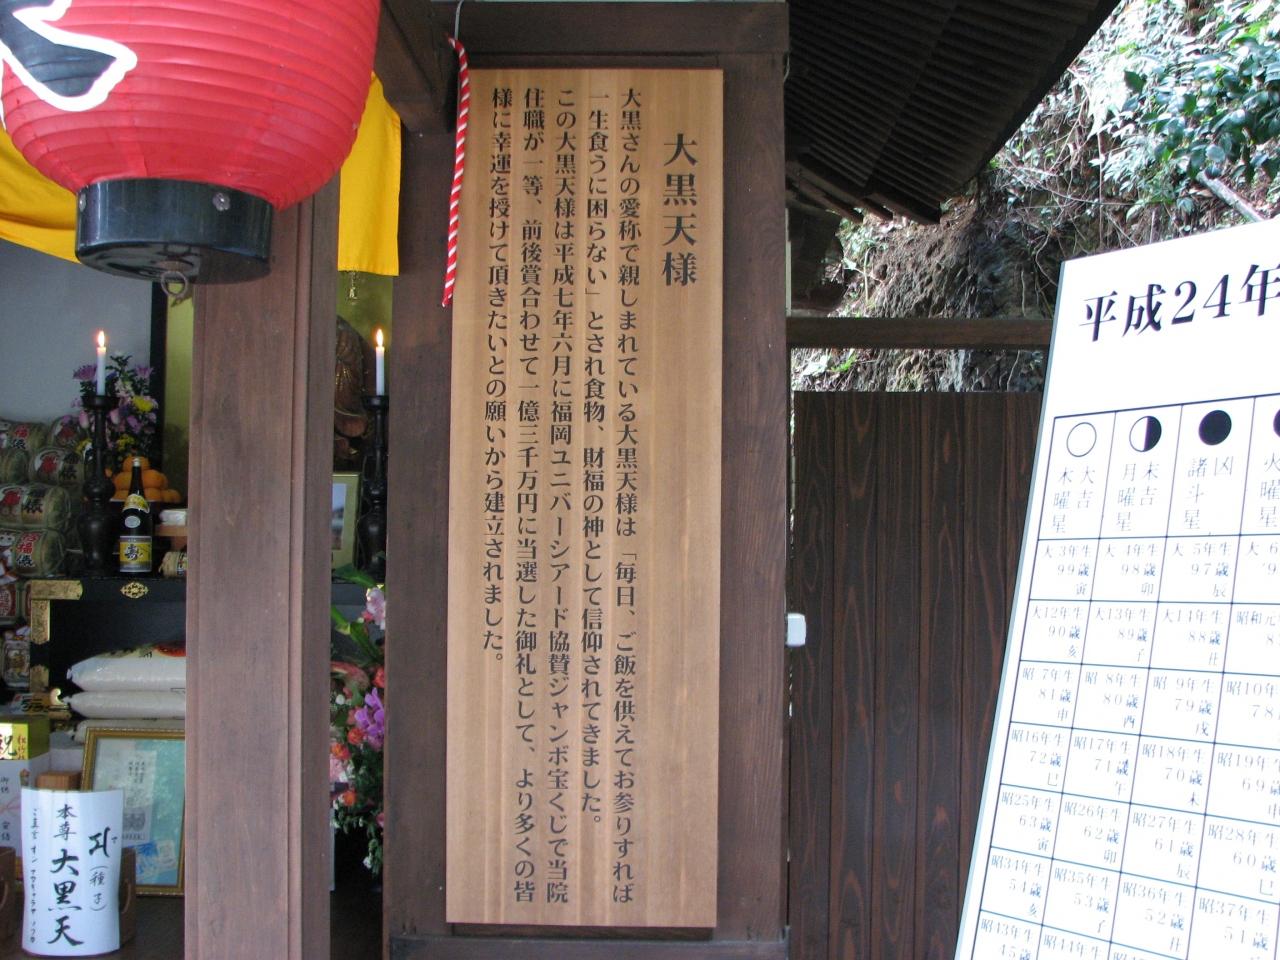 大黒天様
大黒さんの愛称で親しまれている大黒天様は「毎日、ご飯を供えてお参りすれば
一生食うに困らない」とされ食物、財福の神として信仰されてきました。
この大黒天様は平成七年六月に福岡ユニバーシアード協賛ジャンボ宝くじで当院
住職が一等、前後賞合わせて一億三千万円に当選した御礼として、より多くの皆
様に幸運を授けて頂きたいとの願いから建立されました。
平成24年
大吉
木曜星
末吉
月曜星
凶
諸斗星
大3年生
99歳
寅
大4年生
98歳
卯
大5年生
97歳
辰
大12年生
90歳
亥
大13年生
89歳
子
大14年生
88歳
丑
昭和元
昭7年生
81歳
申
昭8年生
80歳
酉
昭9年生
79歳
戌
昭10年
78
昭16年生
72歳
巳
昭17年生
71歳
午
昭18年生
70歳
未
昭19年生
69歳
申
昭25年生
63歳
寅
昭26年生
62歳
卯
昭27年生
61歳
辰
昭28年生
60歳
巳
昭34年生
54歳
亥
昭35年生
53歳
子
昭36年生
52歳
丑
昭37年生
51歳
昭43年生
45歳
昭44年生
本尊 大黒天
種子
祝
寿
福俵